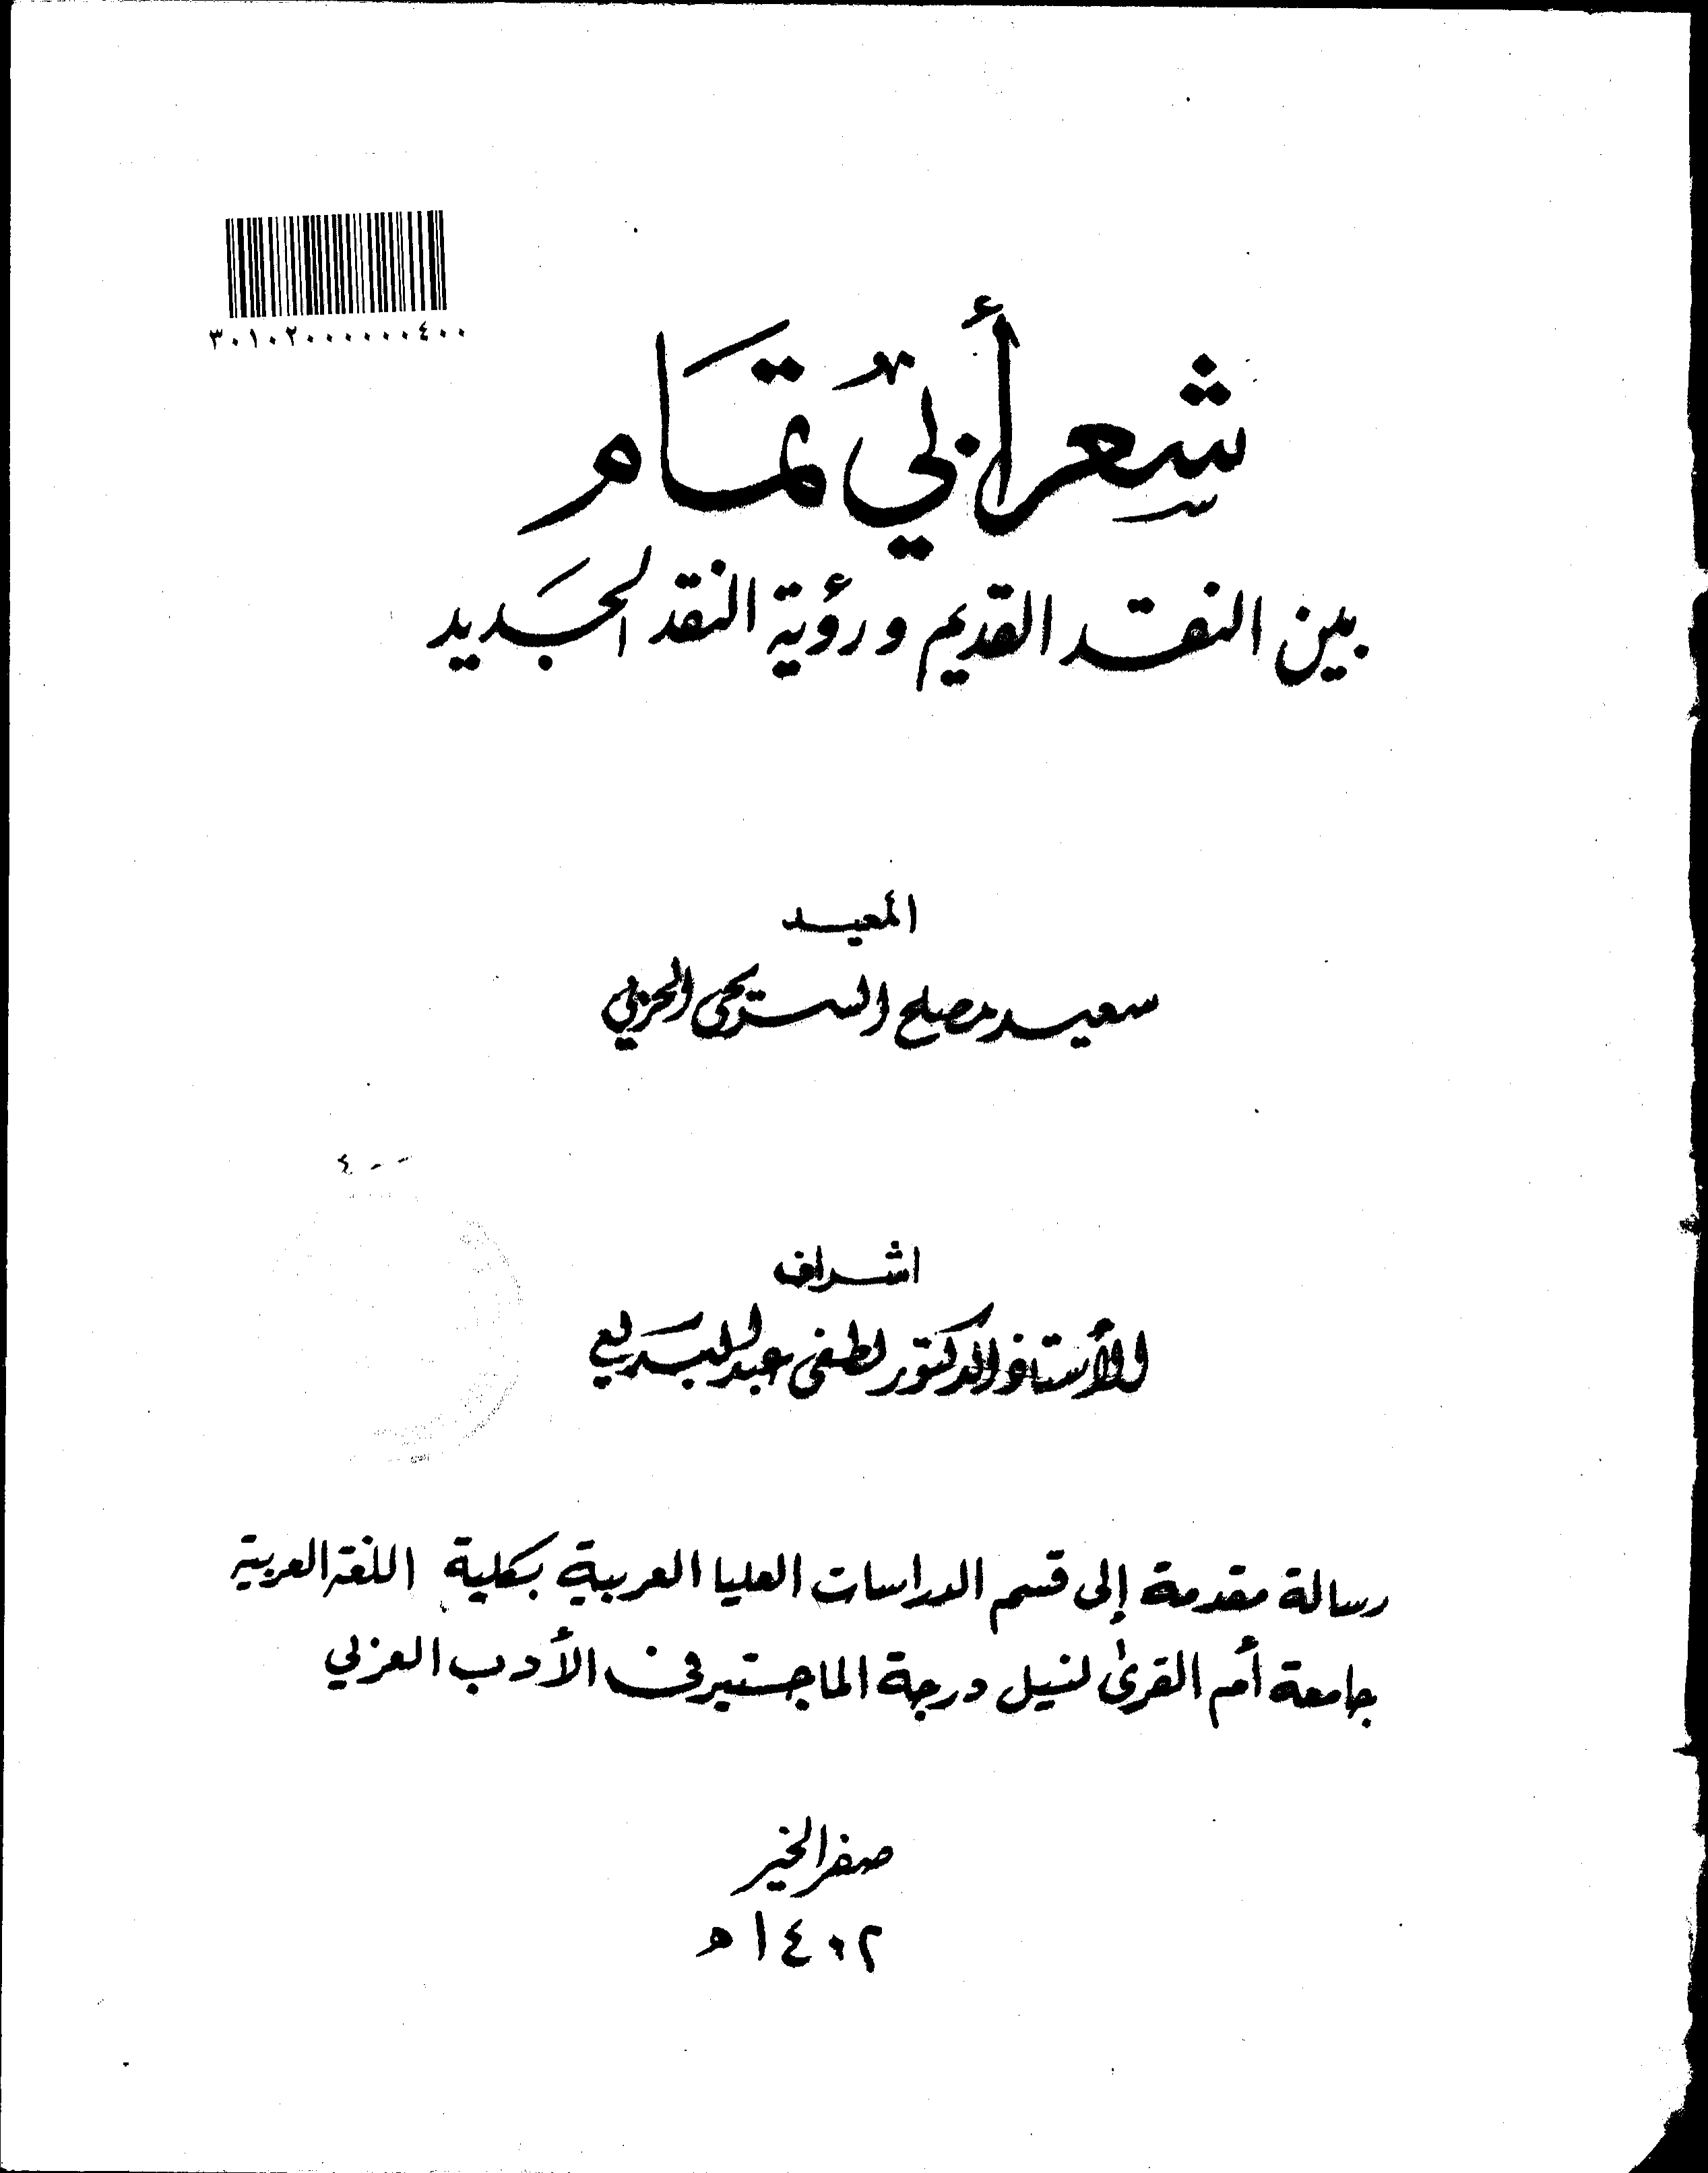 ٣٠١٠٢٠٠٠٠٠٠٤٠٠
شعر أبي تمام
بين النقد القديم ورؤية النقد الجديد
المعيد
سعيد مصلح السريحي الحربي
٤٠٠
اشراف
الأستاذ الدكتور لطفي عبد البديع
رسالة مقدمة إلى قسم الدراسات العليا العربية بكلية اللغة العربية
جامعة أم القرى لنيل درجة الماجستير في الأدب العربي
صفر الخير
١٤٠٢ ه